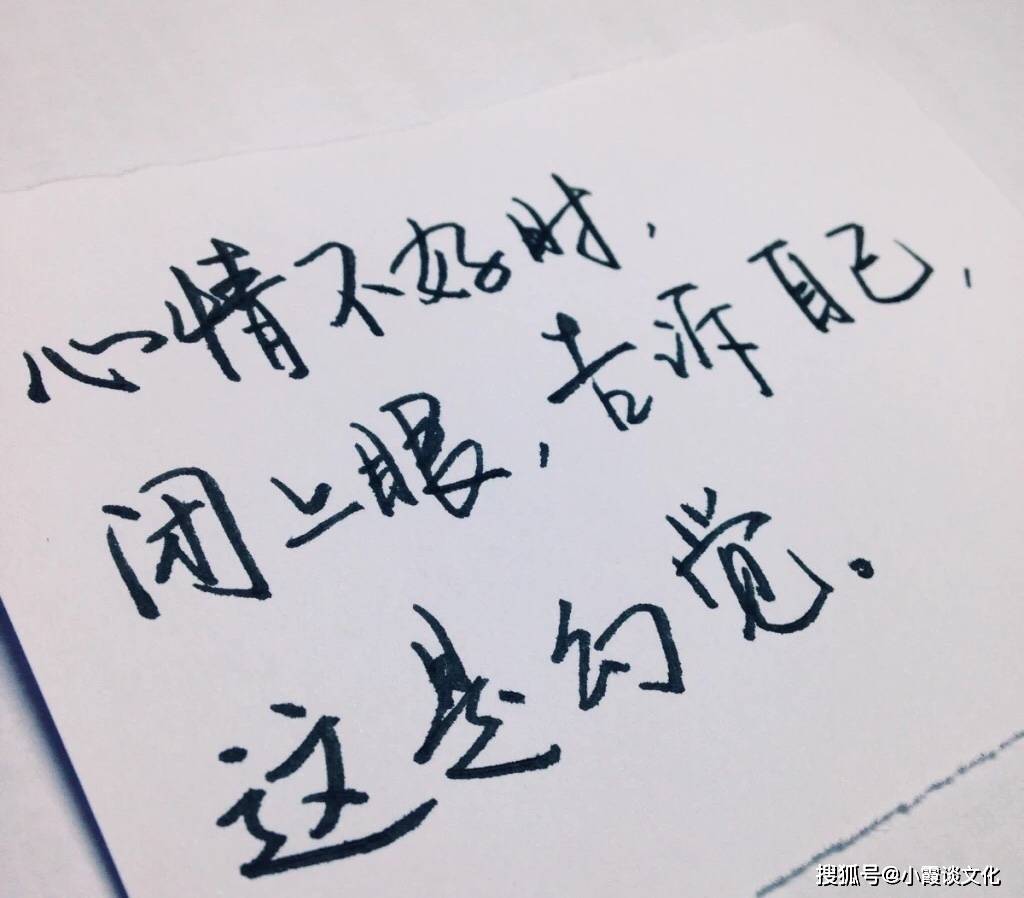 心情不好时,
闭上眼,告诉自己,
这是幻觉。
搜狐号@小霞谈文化